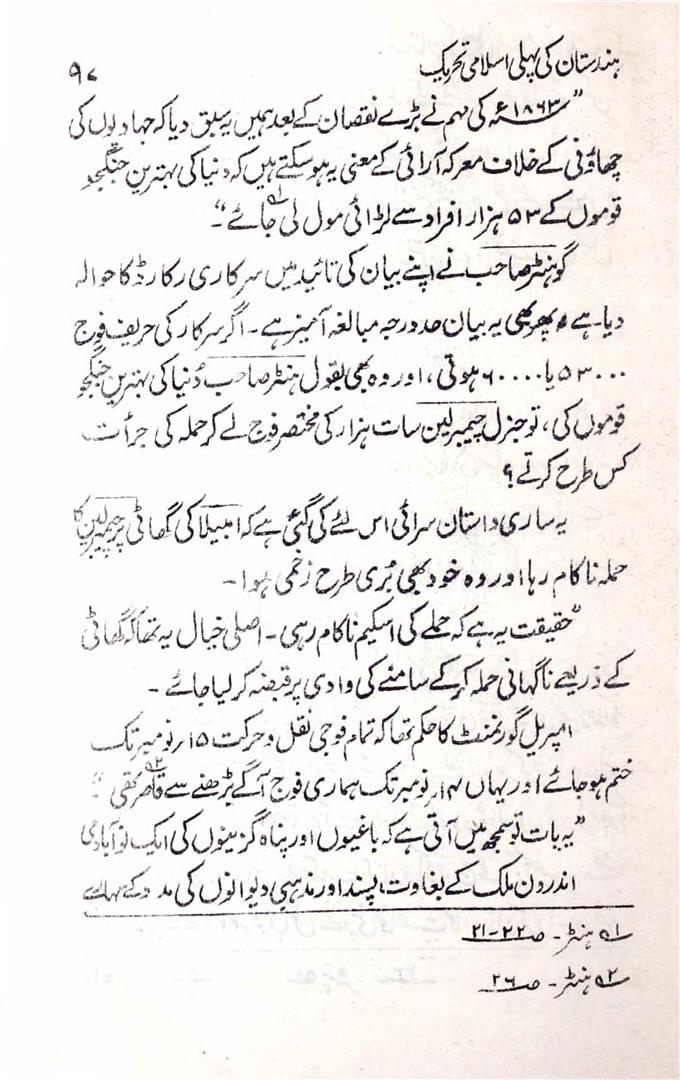 ہندستان کی پہلی اسلامی تحریک ۹۷
”۱۸۶۳ء کی مہم نے بڑے نقصان کے بعد ہمیں یہ سبق دیا کہ جہادیوں کی
چھاؤنی کے خلاف معرکہ آرائی کے معنی یہ ہو سکتے ہیں کہ دنیا کی بہترین جنگجو
قوموں کے ۵۳ ہزار افراد سے لڑائی مول لی جائے“۱ ۔
گو ہنٹر صاحب نے اپنے بیان کی تائید میں سرکاری رکارڈ کا حوالہ
دیا ہے، پھر بھی یہ بیان حد درجہ مبالغہ آمیز ہے ۔ اگر سرکار کی حریف فوج
۵۳۰۰۰ یا ۶۰۰۰۰ ہوتی، اور وہ بھی بقول ہنٹر صاحب دُنیا کی بہترین جنگجو
قوموں کی، تو جنرل چیمبرلین سات ہزار کی مختصر فوج لے کر حملہ کی جرأت
کس طرح کرتے؟
یہ ساری داستان سرائی اس لئے کی گئی ہے کہ امبیلا کی گھاٹی پر چیمبرلین کا
حملہ ناکام رہا اور وہ خود بھی بُری طرح زخمی ہوا ۔
”حقیقت یہ ہے کہ حملے کی اسکیم ناکام رہی ۔ اصلی خیال یہ تھا کہ گھاٹی
کے ذریعے ناگہانی حملہ کر کے سامنے کی وادی پر قبضہ کر لیا جائے ۔
امپریل گورنمنٹ کا حکم تھا کہ تمام فوجی نقل و حرکت ۱۵ نومبر تک
ختم ہو جائے اور یہاں ۱۴ نومبر تک ہماری فوج آگے بڑھنے سے قاصر تھی“۲
”یہ بات تو سمجھ میں آتی ہے کہ باغیوں اور پناہ گزینوں کی ایک نو آبادی
اندرون ملک کے بغاوت پسند اور مذہبی دیوانوں کی مدد کے سہارے
۱ ہنٹر ۔ صـ ۲۲-۲۱
۲ ہنٹر ۔ صـ ۲۶